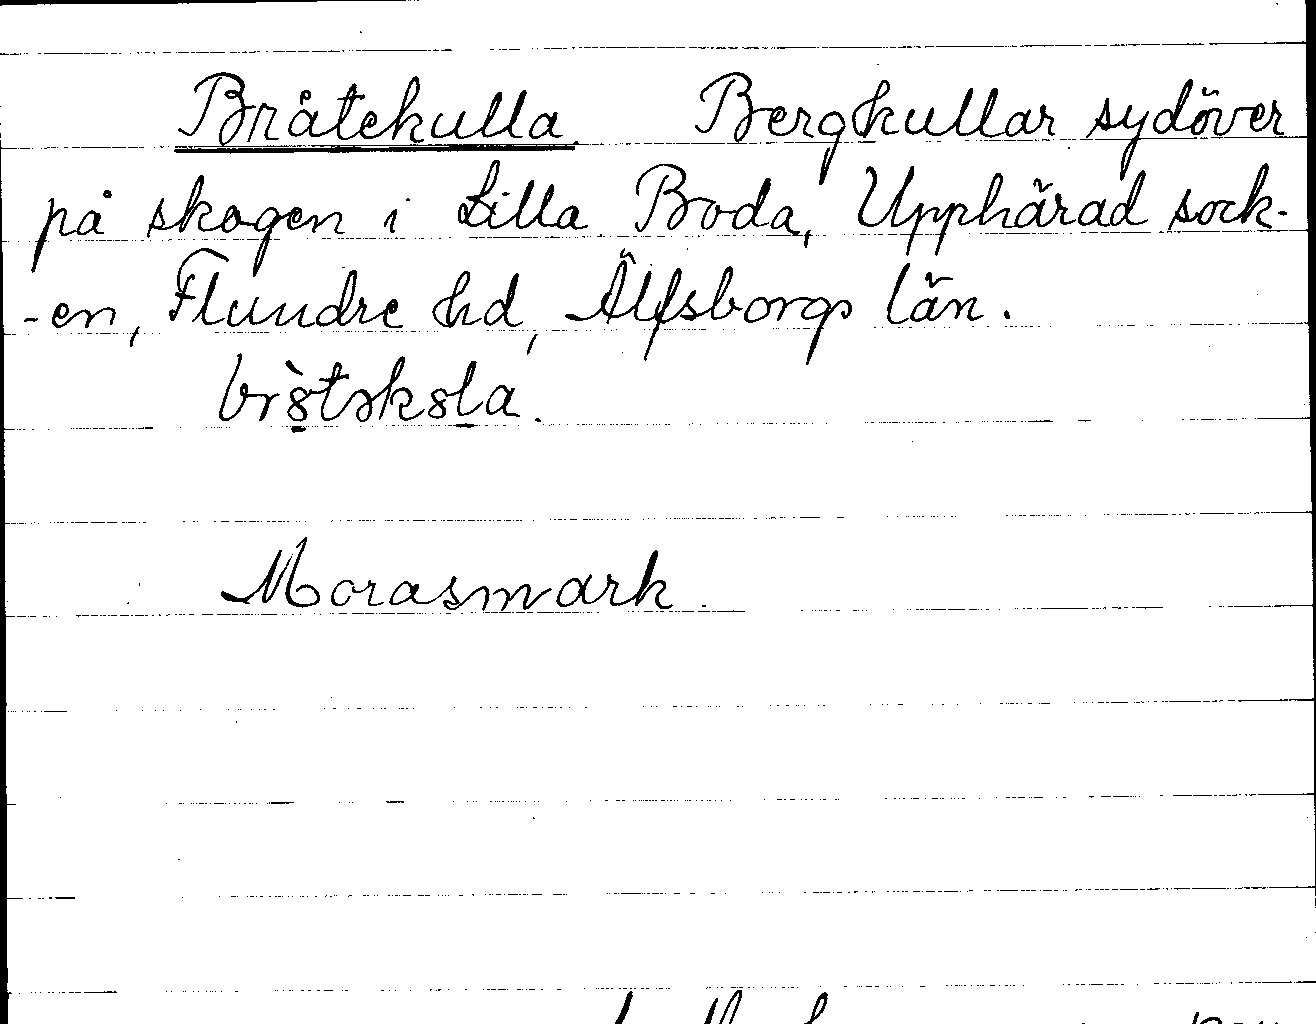 Bråtekulla. Bergkullar sydöver
på skogen i Lilla Boda, Upphärad sock-
-en, Flundre hd, Älfsborgs län.
Morasmark.